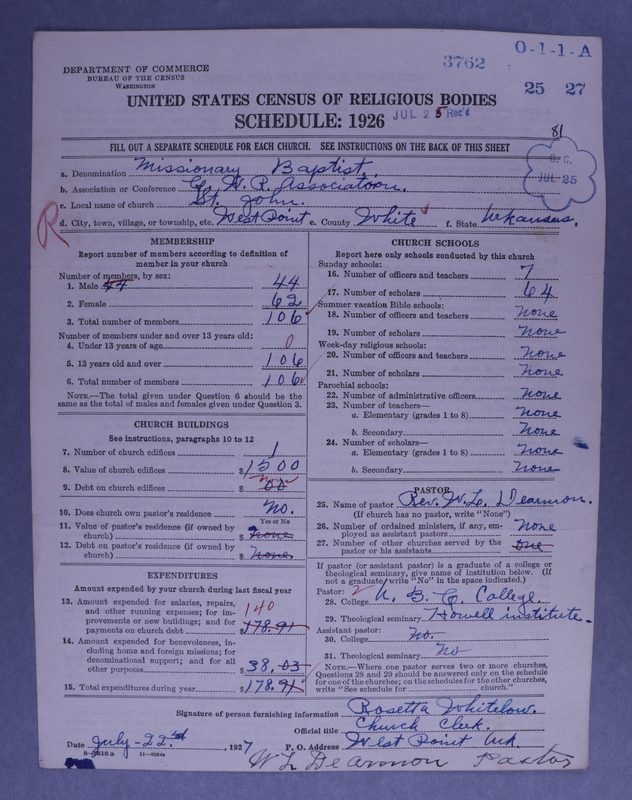 O-1-1-A
3762
25 27
DEPARTMENT OF COMMERCE
BUREAU OF THE CENSUS
WASHINGTON
UNITED STATES CENSUS OF RELIGIOUS BODIES
SCHEDULE: 1926
JUL 25 Rec'd
81
FILL OUT A SEPARATE SCHEDULE FOR EACH CHURCH. SEE INSTRUCTIONS ON THE BACK OF THIS SHEET
JUL 25
a. Denomination Missionary Baptist.
b. Association or Conference Association.
c. Local name of church St. John.
d. City, town, village, or township, etc. West Point e. County White f. State Arkansas.
R
MEMBERSHIP
Report number of members according to definition of
member in your church
Number of members, by sex:
1. Male 44 44
2. Female 62
3. Total number of members 106
Number of members under and over 13 years old:
4. Under 13 years of age 0
5. 13 years old and over 106
6. Total number of members 106
NOTE.—The total given under Question 6 should be the
same as the total of males and females given under Question 3.
CHURCH BUILDINGS
See instructions, paragraphs 10 to 12
7. Number of church edifices 1
8. Value of church edifices $1500
9. Debt on church edifices $ 00
10. Does church own pastor's residence no.
Yes or No
11. Value of pastor's residence (if owned by
church) $ none
12. Debt on pastor's residence (if owned by
church) $ none.
EXPENDITURES
Amount expended by your church during last fiscal year
13. Amount expended for salaries, repairs,
and other running expenses; for im-
provements or new buildings; and for
payments on church debt 140 $178.91
14. Amount expended for benevolences, in-
cluding home and foreign missions; for
denominational support; and for all
other purposes $38.03
15. Total expenditures during year $178.91
CHURCH SCHOOLS
Report here only schools conducted by this church
Sunday schools:
16. Number of officers and teachers 7
17. Number of scholars 64
Summer vacation Bible schools:
18. Number of officers and teachers none
19. Number of scholars none
Week-day religious schools:
20. Number of officers and teachers none
21. Number of scholars none
Parochial schools:
22. Number of administrative officers none
23. Number of teachers—
a. Elementary (grades 1 to 8) none
b. Secondary none
24. Number of scholars—
a. Elementary (grades 1 to 8) none
b. Secondary none
PASTOR
25. Name of pastor Rev. W. L. Dearmon.
(If church has no pastor, write "None")
26. Number of ordained ministers, if any, em-
ployed as assistant pastors none
27. Number of other churches served by the
pastor or his assistants one
If pastor (or assistant pastor) is a graduate of a college or
theological seminary, give name of institution below. (If
not a graduate write "No" in the space indicated.)
Pastor:
28. College A. B. C. College
29. Theological seminary Howell institute.
Assistant pastor:
30. College no.
31. Theological seminary no
NOTE.—Where one pastor serves two or more churches,
Questions 28 and 29 should be answered only on the schedule
for one of the churches; on the schedules for the other churches,
write "See schedule for church."
Signature of person furnishing information Rosetta Whitelow.
Official title Church Clerk.
Date July-22.nd, 1927 P. O. Address West Point Ark.
11—9584
W L Dearmon Pastor